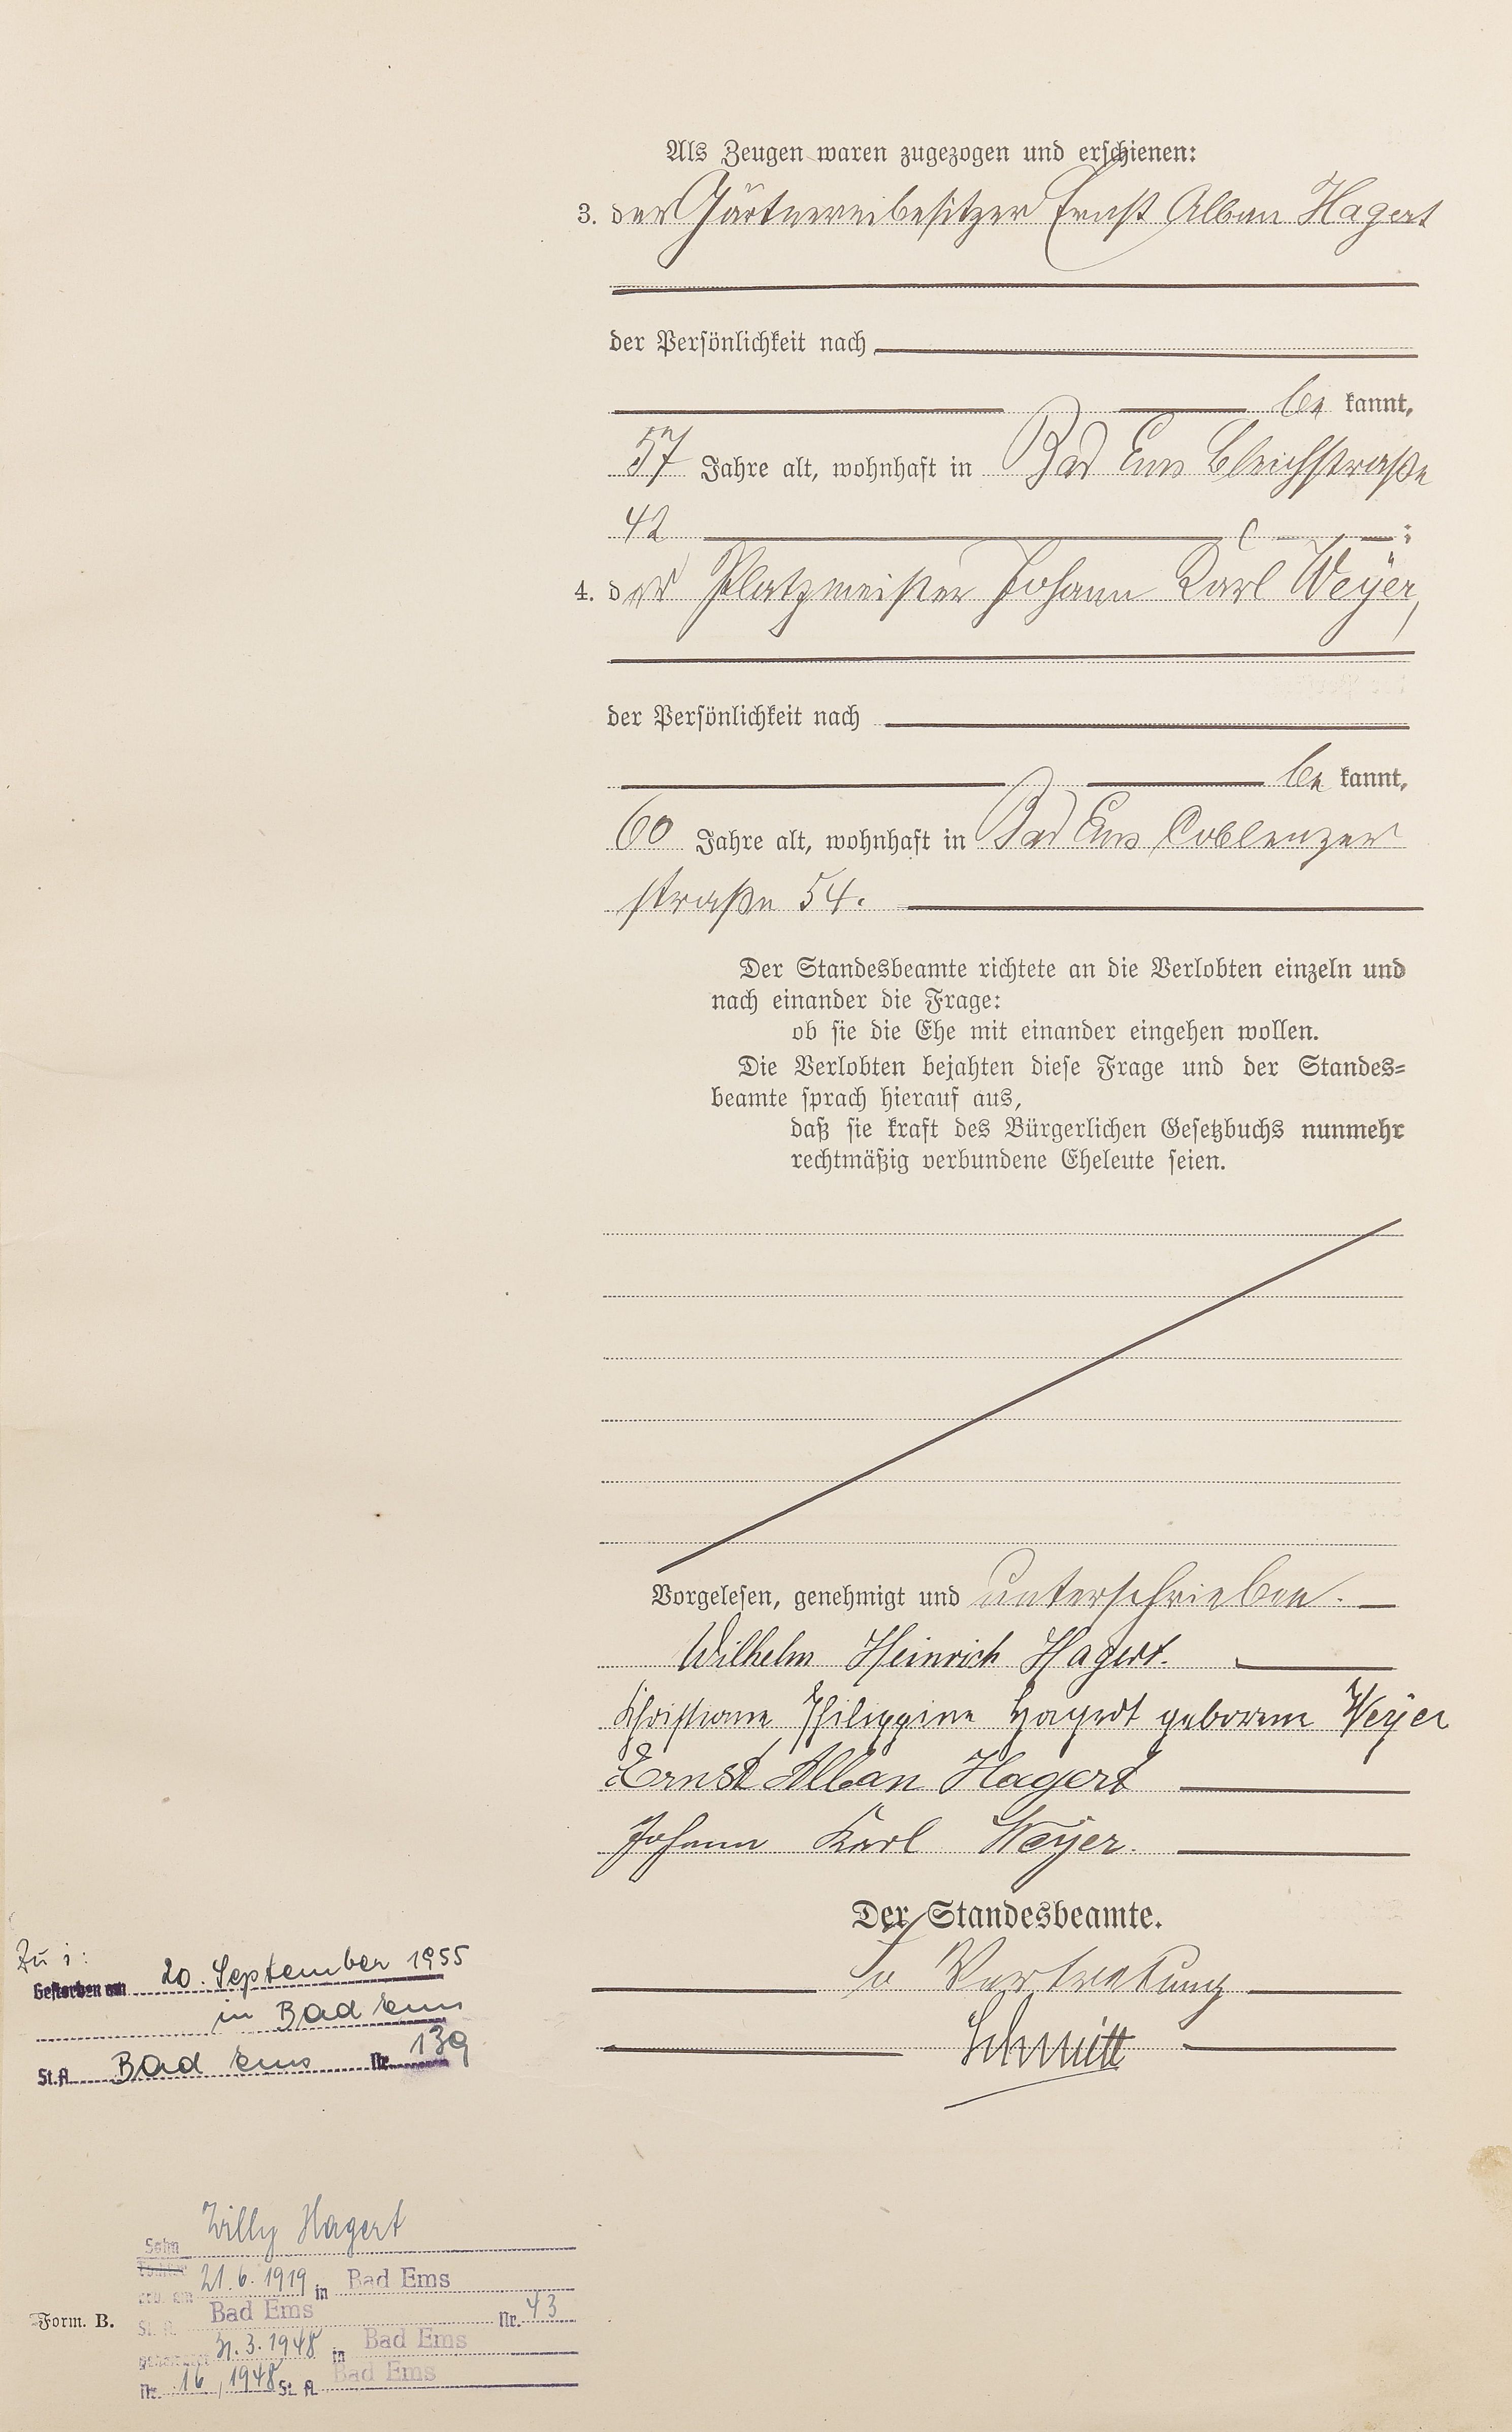 Als Zeugen waren zugezogen und erschienen:
3. der Gärtnereibesitzer Ernst Alban Hagert
der Persönlichkeit nach
be kannt,
57 Jahre alt, wohnhaft in Bad Ems Bleichstraße
42 ;
4. der Platzmeister Johann Karl Weÿer,
der Persönlichkeit nach
be kannt,
60 Jahre alt, wohnhaft in Bad Ems Coblenzer
straße 54.
Der Standesbeamte richtete an die Verlobten einzeln und
nach einander die Frage:
ob sie die Ehe mit einander eingehen wollen.
Die Verlobten bejahten diese Frage und der Standes=
beamte sprach hierauf aus,
daß sie kraft des Bürgerlichen Gesetzbuchs nunmehr
rechtmäßig verbundene Eheleute seien.
Vorgelesen, genehmigt und unterschrieben.
Wilhelm Heinrich Hagert.
Christiane Philippine Hagert geborene Weÿer
Ernst Alban Hagert
Johann Karl Weyer.
Der Standesbeamte.
In Vertretung
Schmitt
Zu 1:
Gestorben am 20. September 1955
in Bad Ems
St.A. Bad Ems Nr. 139
Willy Hagert
Sohn
Tochter
geb. am 21.6.1919 in Bad Ems
St. A. Bad Ems Nr. 43
3.1948 in Bad Ems
Nr. 16, 1948 St. A. Bad Ems
Form. B.